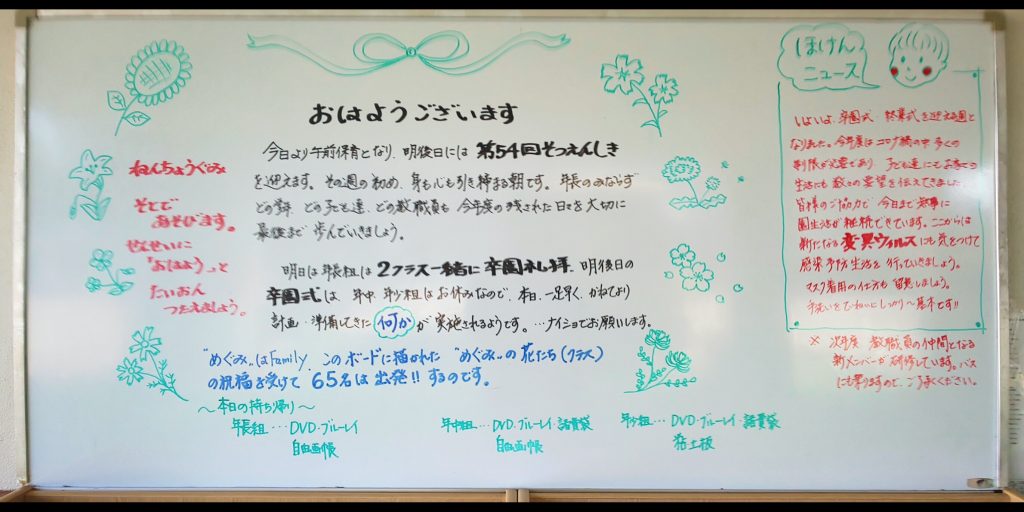 おはようございます
今日より午前保育となり、明後日には 第54回そつえんしき
を迎えます。その週の初め、身も心も引き締まる朝です。年長のみならず
どの学年、どの子ども達、どの教職員も 今年度の残された日々を大切に
最後まで歩んでいきましょう。
明日は年長組は 2クラス一緒に 卒園礼拝、明後日の
卒園式は、年中、年少組はお休みなので、本日、一足早く、かねてより
計画・準備してきた 何か が 実施されるようです。…ナイショでお願いします。
"めぐみ"はFamily このボードに描かれた "めぐみ"の花たち(クラス)
の祝福を受けて 65名は 出発!! するのです。
〜本日の持ち帰り〜
年長組…DVD・ブルーレイ
自由画帳
年中組…DVD・ブルーレイ・諸費袋
自由画帳
年少組…DVD・ブルーレイ・諸費袋
粘土板
ねんちょうぐみ
そとで
あそびます。
せんせいに
「おはよう」と
たいおん
つたえましょう。
ほけん
ニュース
いよいよ、卒園式・終業式を迎える週と
なりました。今年度はコロナ禍の中 多くの
制限が必要であり、子ども達にもお家での
生活にも 数々の要望を伝えてきました。
皆様のご協力で 今日まで 無事に
園生活が継続できています。ここからは
新たなる 変異ウィルス にも気をつけて
感染予防生活を 行っていきましょう。
マスク着用の仕方も 留意しましょう。
手洗いも ていねいに しっかり〜基本です!!
※ 次年度 教職員の仲間となる
新メンバーが 研修しています。バス
にも乗りますので、ご了承ください。